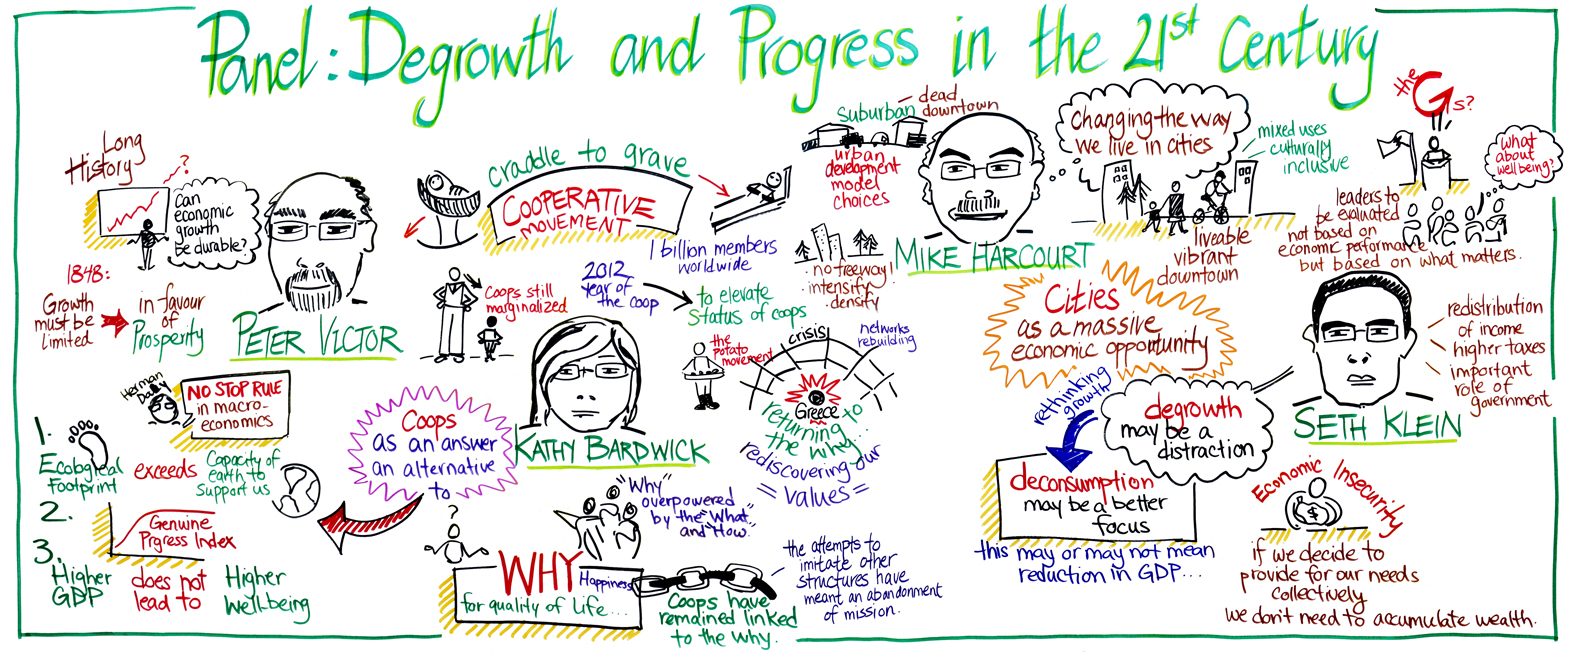 Panel: Degrowth and Progress in the 21st Century
Long
History
?
Can
economic
growth
be durable?
1848:
Growth
must be
limited
in favour
of
Prosperity
PETER VICTOR
Herman
Daly
NO STOP RULE
in macro-
economics
1.
Ecological
Footprint
exceeds
Capacity of
earth to
support us
2.
Genuine
Progress Index
3.
Higher
GDP
does not
lead to
Higher
Well-being
craddle to grave
COOPERATIVE
MOVEMENT
1 billion members
worldwide
2012
year of
the coop
to elevate
status of coops
Coops still
marginalized
KATHY BARDWICK
Coops
as an answer
an alternative
to
the
potato
movement
crisis
networks
rebuilding
Greece
returning to
the why...
rediscovering our
= values =
"Why"
overpowered
by the "What"
and "How"
?
WHY
Happiness
for quality of life...
Coops have
remained linked
to the why.
the attempts to
imitate other
structures have
meant an abandonment
of mission.
suburban
dead
downtown
urban
development
model
choices
no freeway!
intensify
density
MIKE HARCOURT
Changing the way
we live in cities
mixed uses
culturally
inclusive
liveable
vibrant
downtown
Cities
as a massive
economic opportunity
the
Gs?
what
about
wellbeing?
leaders to
be evaluated
not based on
economic performance
but based on what matters.
SETH KLEIN
redistribution
of income
higher taxes
important
role of
government
degrowth
may be a
distraction
rethinking
growth
deconsumption
may be a better
focus
this may or may not mean
reduction in GDP...
Economic Insecurity
$
if we decide to
provide for our needs
collectively
we don't need to accumulate wealth.